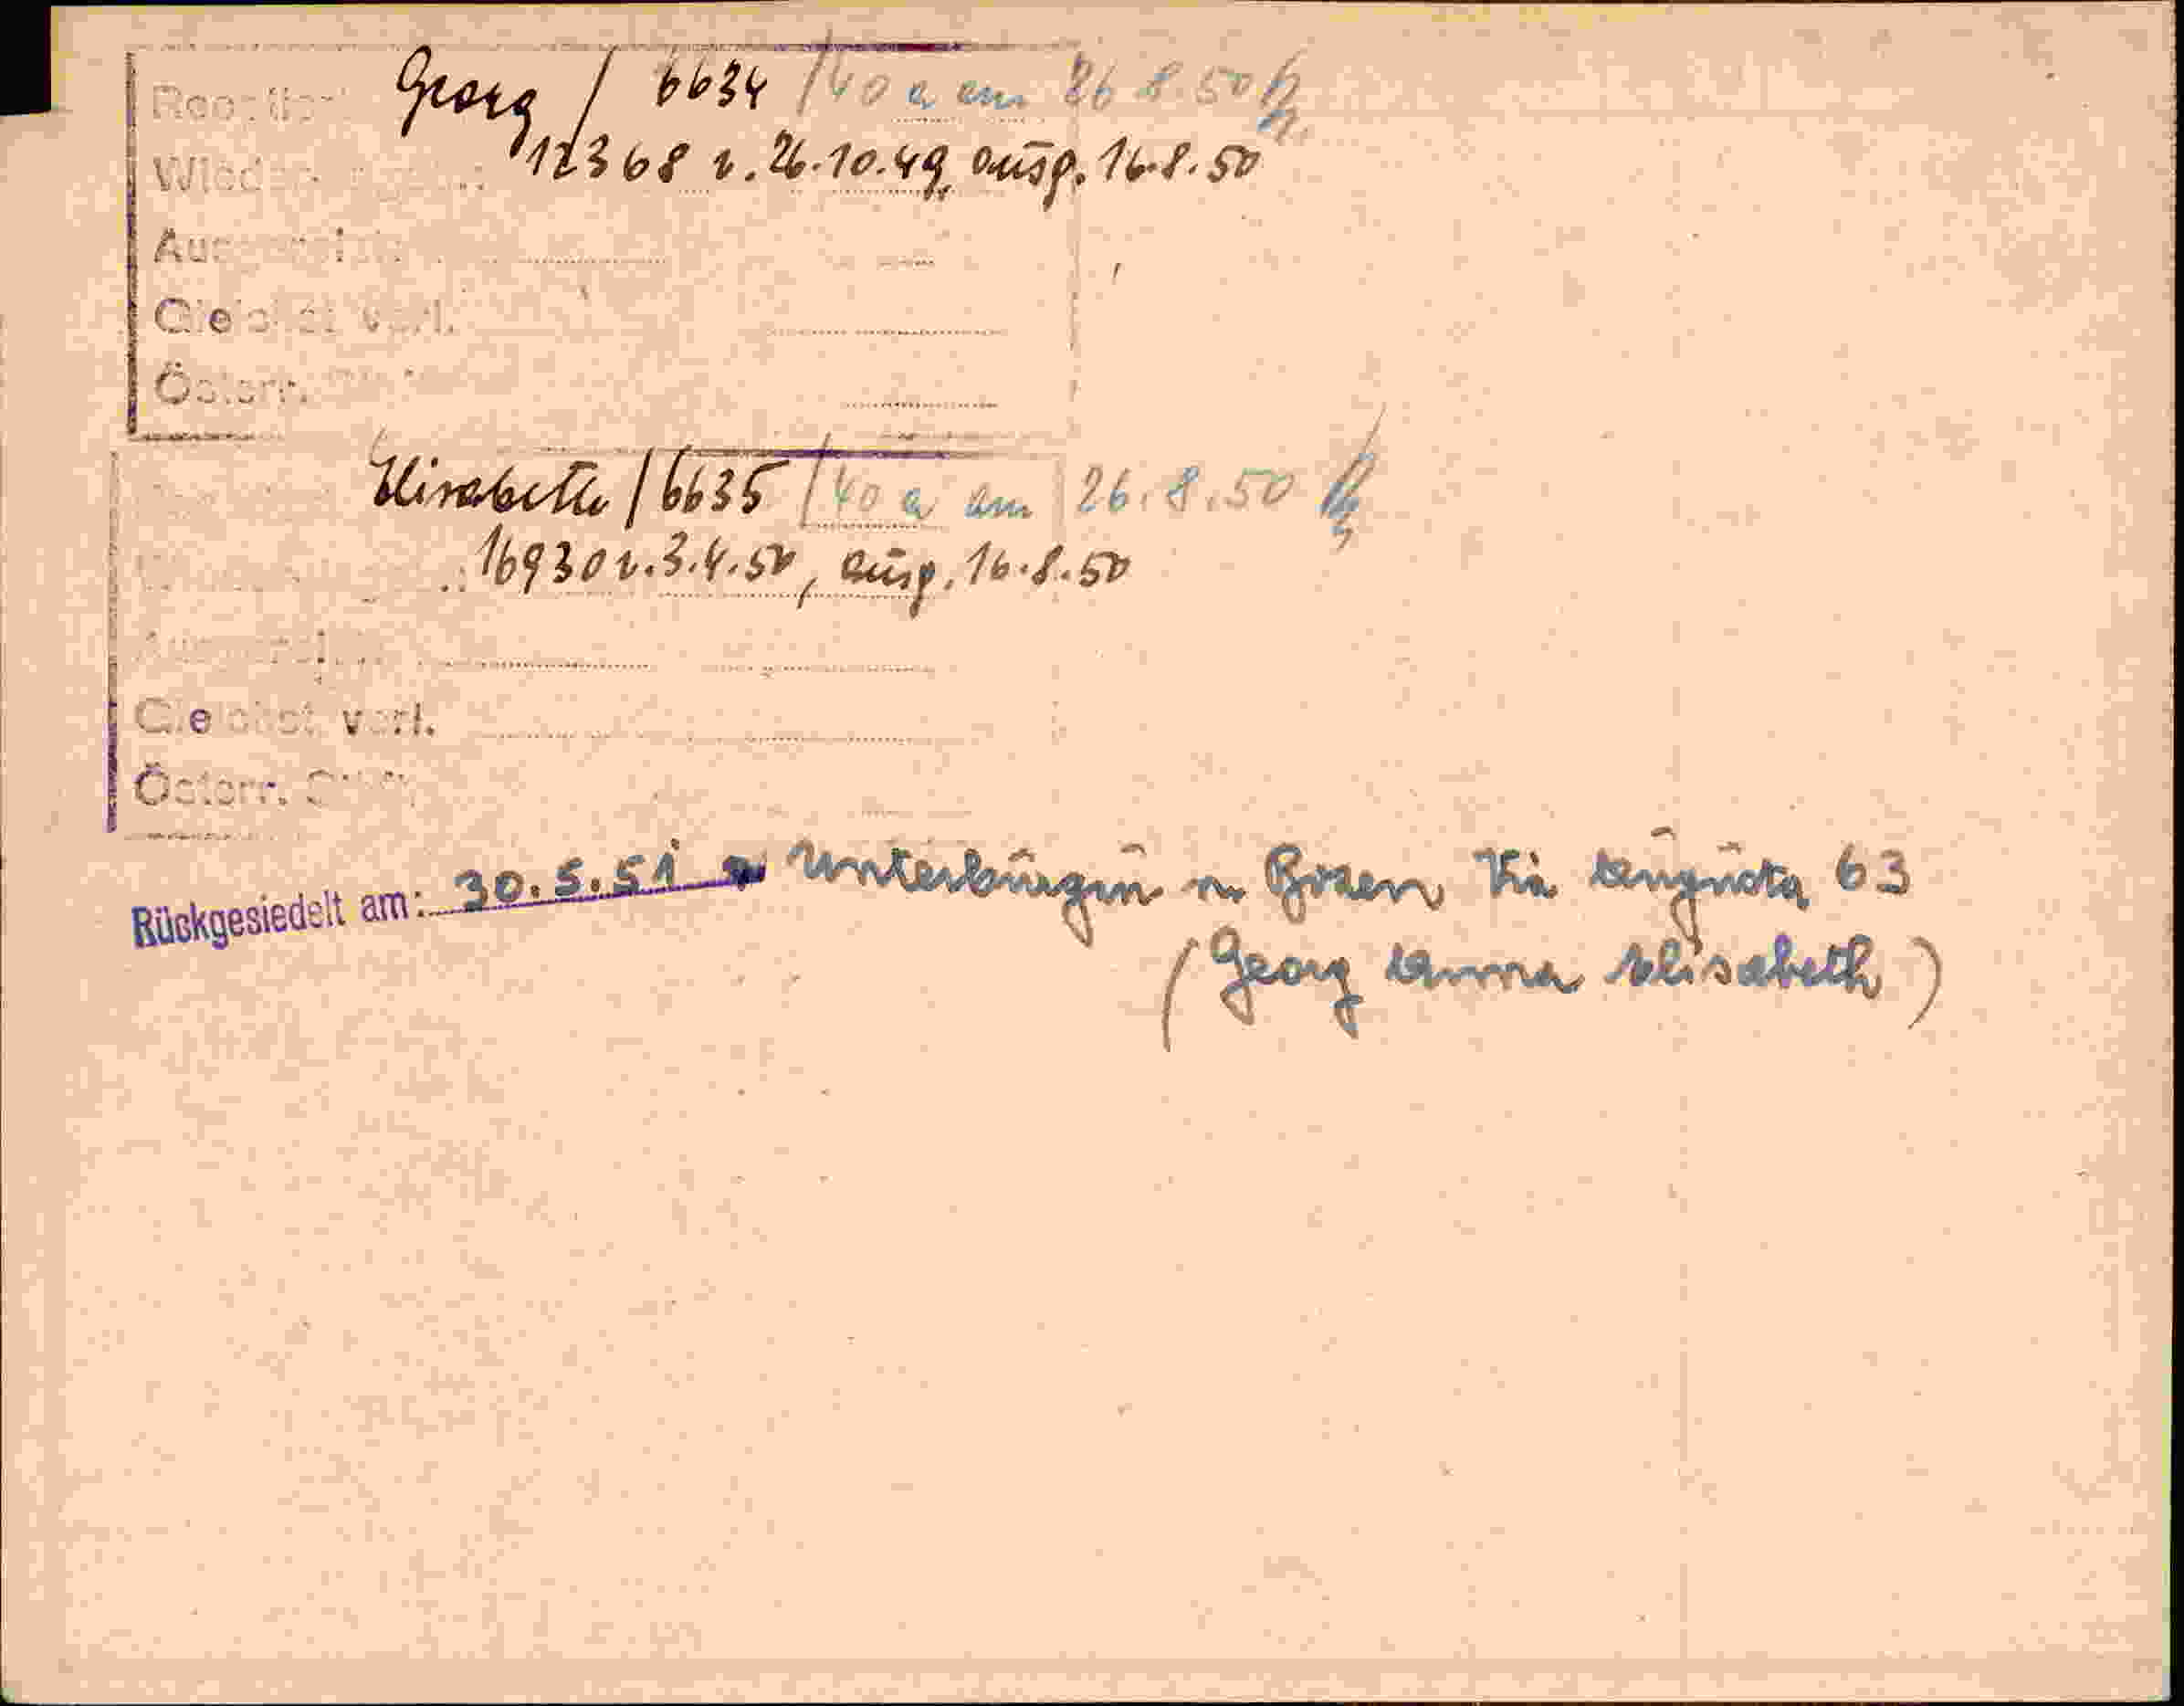 Georg / 6634 / 40 a am 26.8.50
12368 v. 26.10.49, ausg. 16.8.50
Gleichst. verl.
Österr.
Elisabeth / 6635 / 40 a am 26.8.50
16930 v. 3.4.50, ausg. 16.8.50
Gleichst. verl.
Österr.
Rückgesiedelt am: 30.5.51 Unterbürgin in Bozen Via Augusta 63
(Georg Anna Elisabeth)